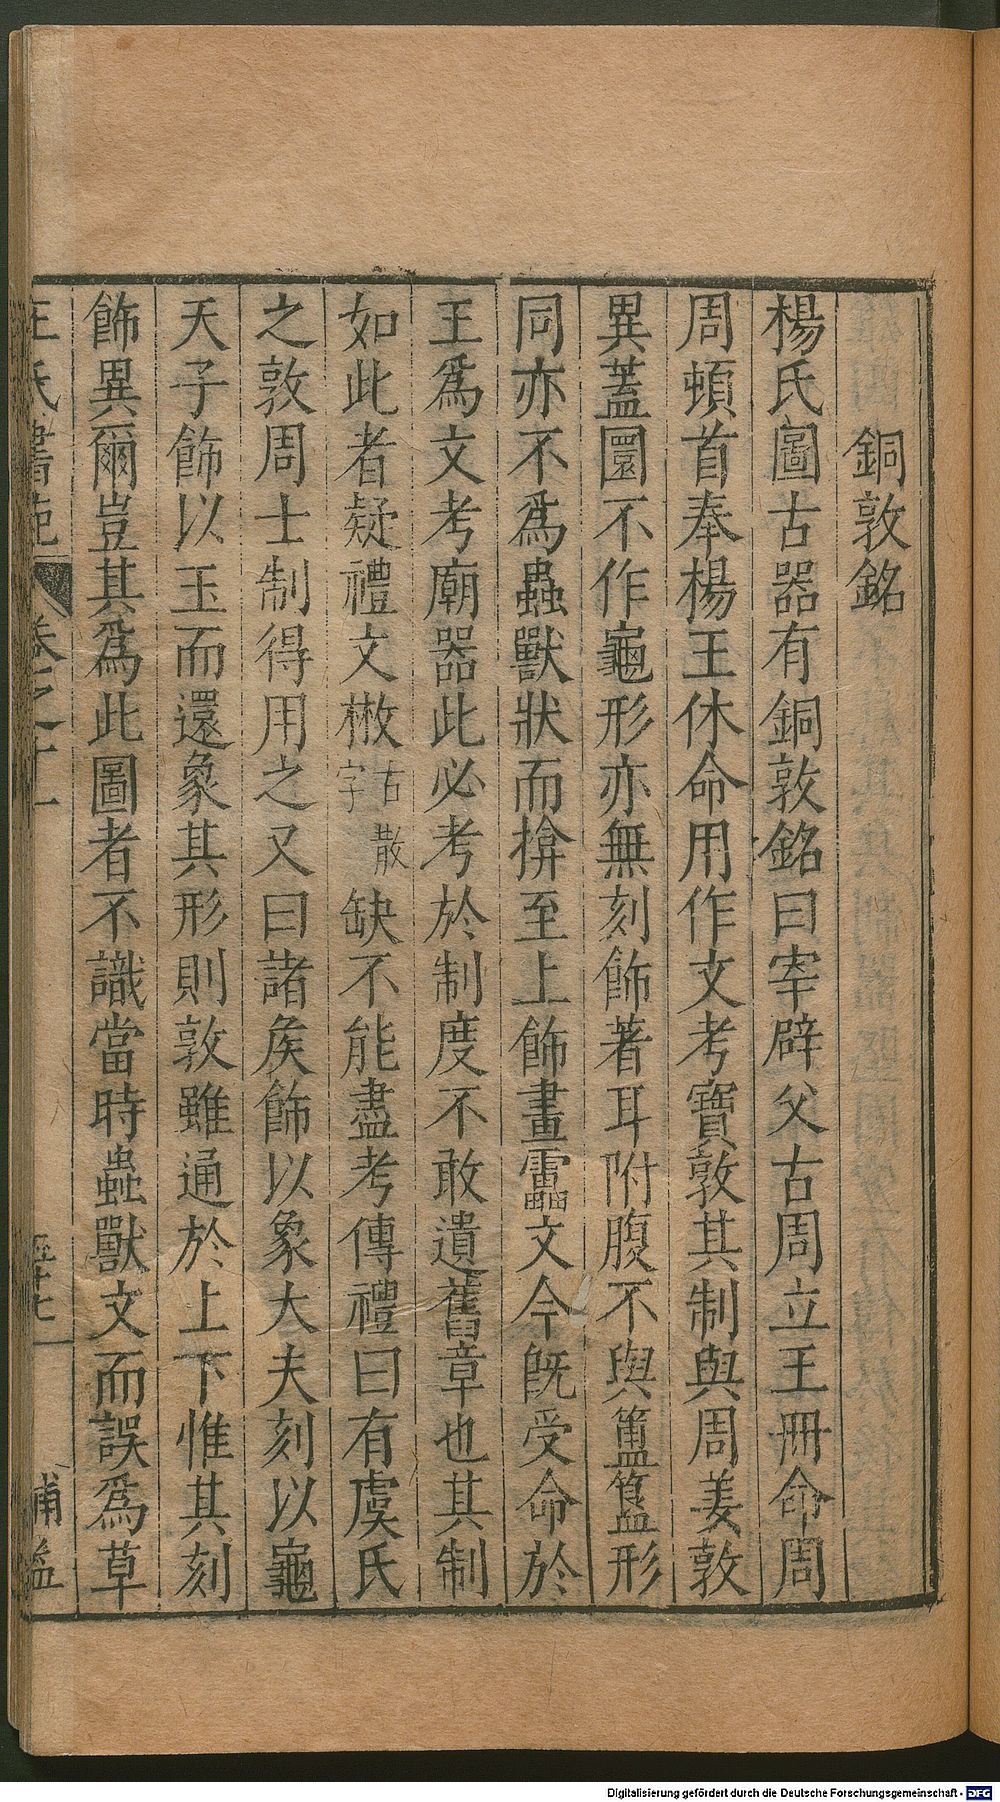 銅敦銘
楊氏圖古器有銅敦銘曰宰辟父古周立王冊命周
周頓首奉楊王休命用作文考寶敦其制與周姜敦
異蓋圜不作龜形亦無刻飾著耳附腹不與簠簋形
同亦不為蟲獸狀而揜至上飾畫靁文今旣受命於
王為文考廟器此必考於制度不敢遺舊章也其制
如此者疑禮文㪚古散字缺不能盡考傳禮曰有虞氏
之敦周士制得用之又曰諸矦飾以象大夫刻以龜
天子飾以玉而還象其形則敦雖通於上下惟其刻
飾異爾豈其為此圖者不識當時蟲獸文而誤為草
王氏書苑 卷之十一 補益
Digitalisierung gefördert durch die Deutsche Forschungsgemeinschaft - DFG